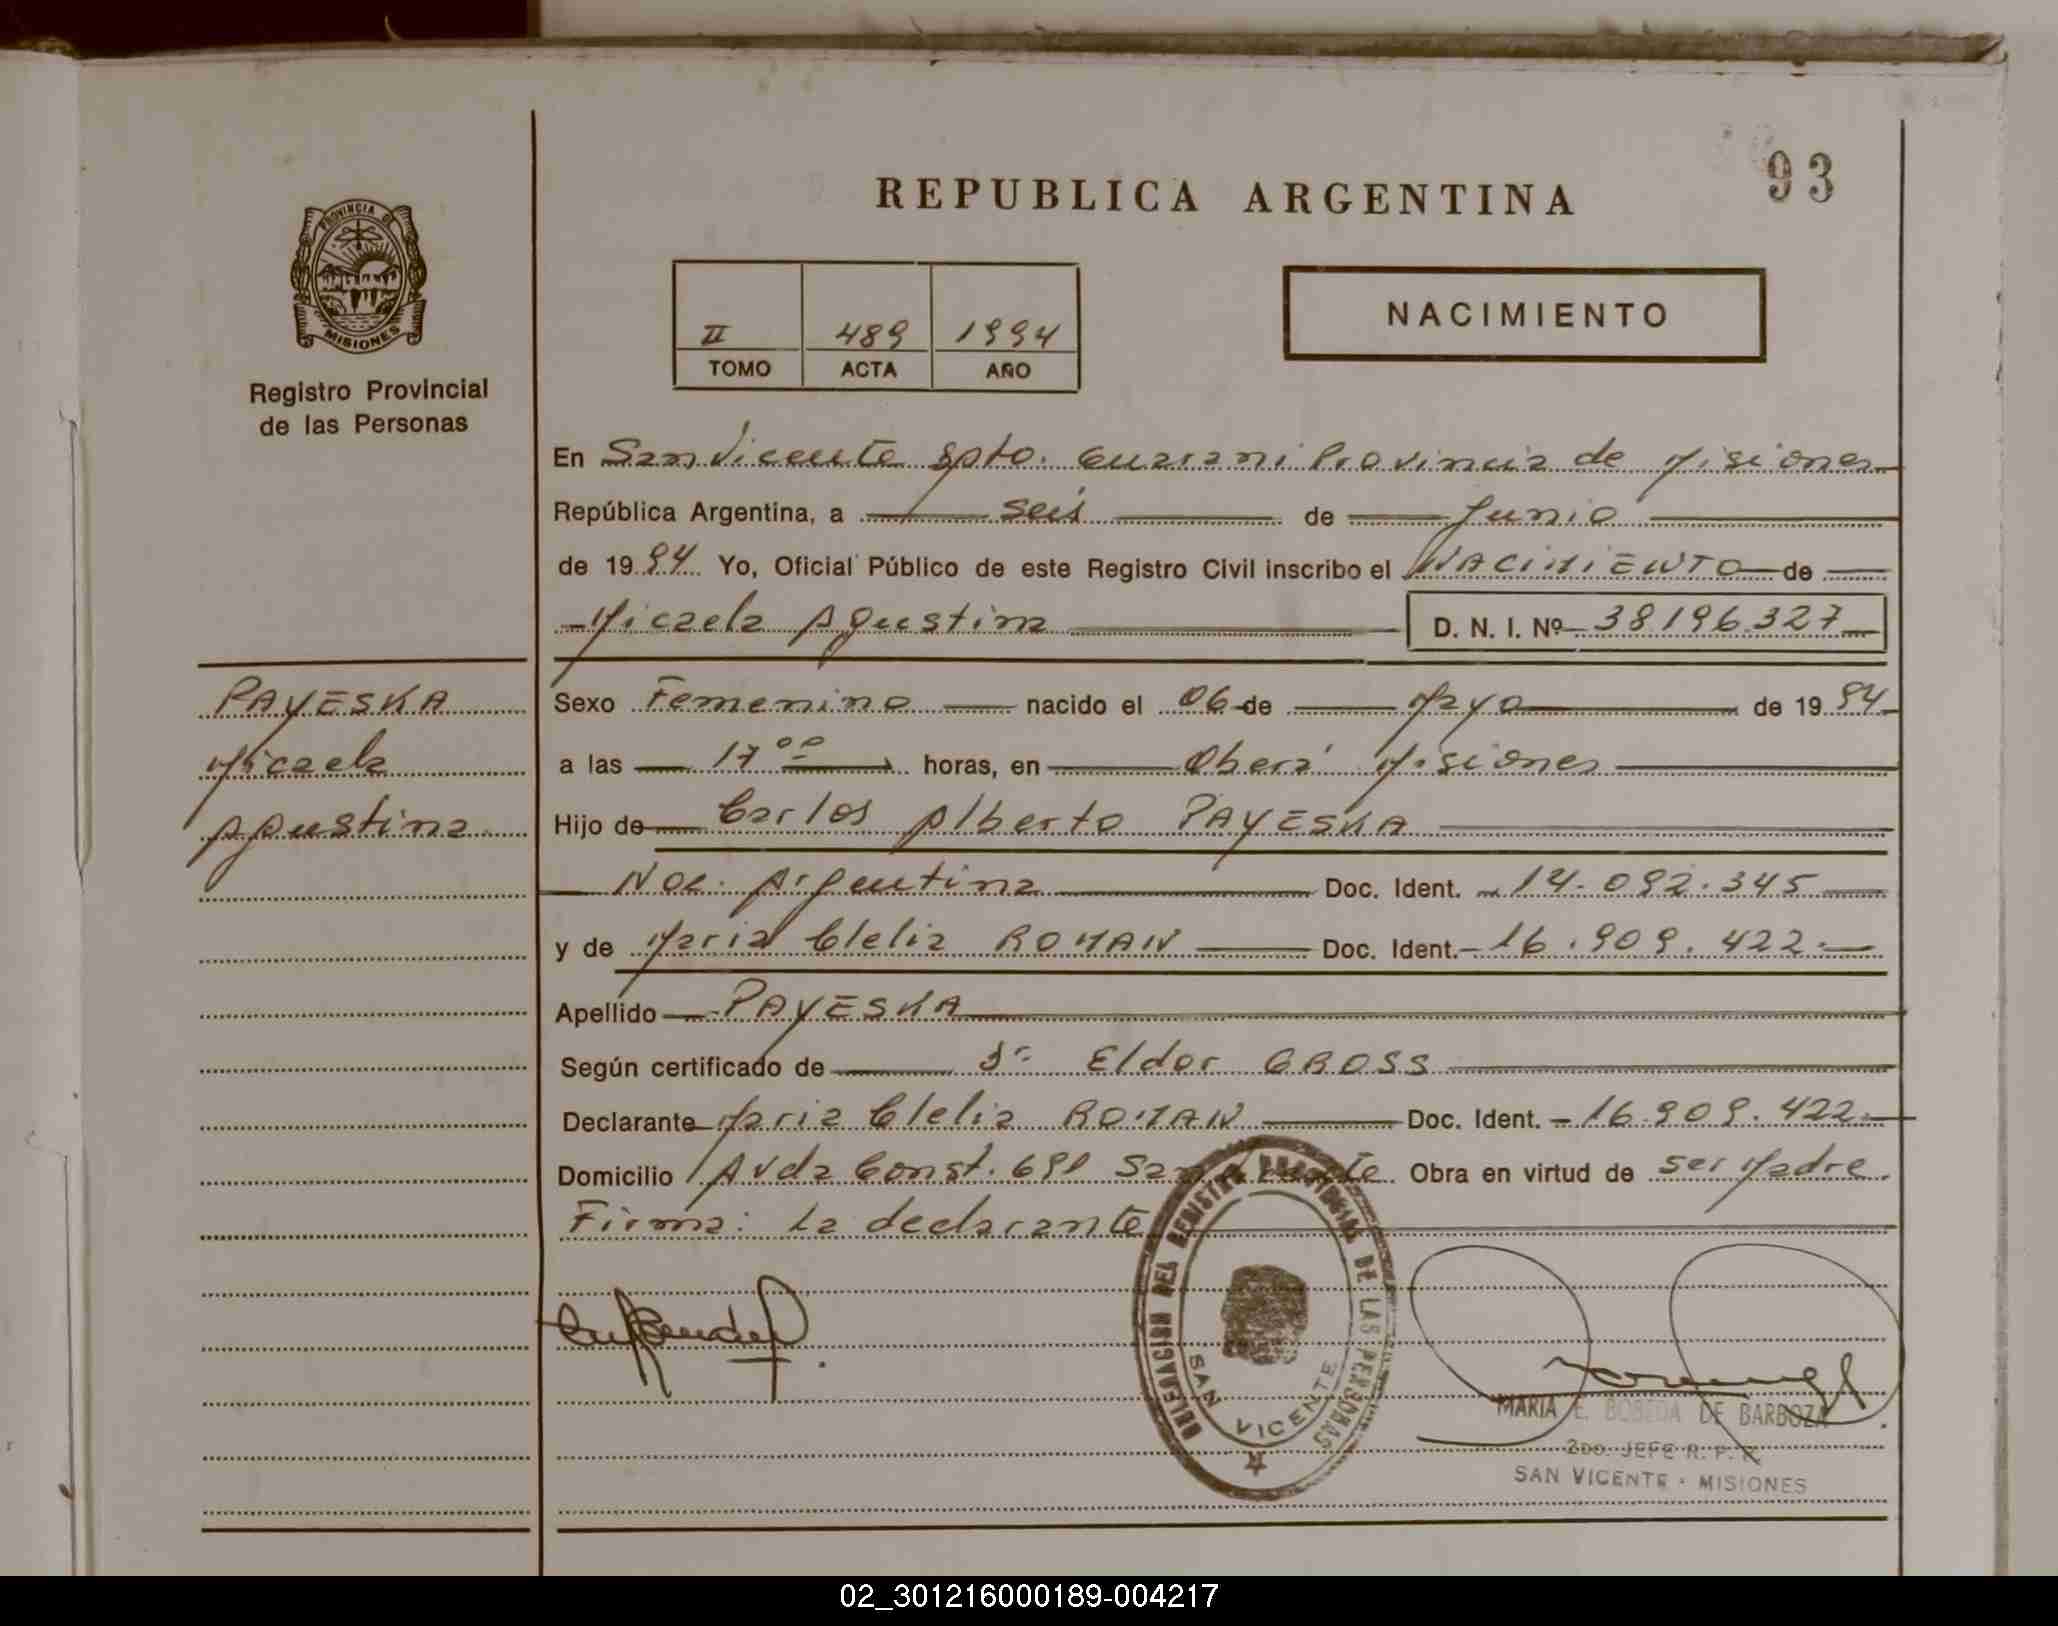 93
REPUBLICA ARGENTINA
PROVINCIA DE
MISIONES
Registro Provincial
de las Personas
NACIMIENTO
II 489 1994
TOMO ACTA AÑO
En San Vicente Dpto. Guarani Provincia de Misiones
República Argentina, a seis de Junio
de 1994 Yo, Oficial Público de este Registro Civil inscribo el NACIMIENTO de
Micaela Agustina D. N. I. Nº 38196.327
PAYESKA
Micaela
Agustina
Sexo Femenino nacido el 06 de Mayo de 1994
a las 17 oo horas, en Oberá Misiones
Hijo de Carlos Alberto PAYESKA
Nac. Argentina Doc. Ident. 14.092.345
y de Maria Clelia ROMAN Doc. Ident. 16.909.422
Apellido PAYESKA
Según certificado de Dr. Eldor GROSS
Declarante Maria Clelia ROMAN Doc. Ident. 16.909.422
Domicilio Avda Const. 691 San Vicente Obra en virtud de ser Madre
Firma: La declarante
DELEGACION DEL REGISTRO PROVINCIAL DE LAS PERSONAS
SAN VICENTE
MARIA E. BOBEDA DE BARBOZA
2DO. JEFE R. P.
SAN VICENTE - MISIONES
02_301216000189-004217